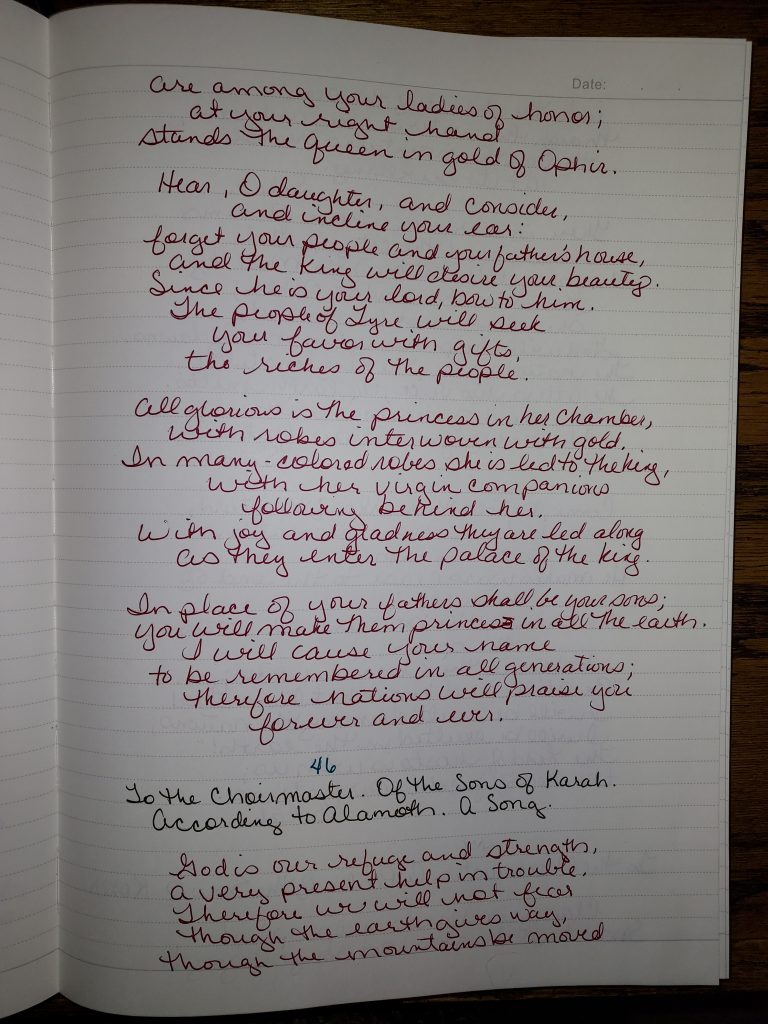 Date:
are among your ladies of honor;
at your right hand
stands the queen in gold of Ophir.
Hear, O daughter, and consider,
and incline your ear:
forget your people and your father's house,
and the king will desire your beauty.
Since he is your lord, bow to him.
The people of Tyre will seek
your favor with gifts,
the riches of the people.
All glorious is the princess in her chamber,
with robes interwoven with gold.
In many-colored robes she is led to the king,
with her virgin companions
following behind her.
With joy and gladness they are led along
as they enter the palace of the king.
In place of your fathers shall be your sons;
you will make them princes in all the earth.
I will cause your name
to be remembered in all generations;
therefore nations will praise you
forever and ever.
46
To the Choirmaster. Of the Sons of Karah.
According to Alamoth. A Song.
God is our refuge and strength,
a very present help in trouble.
Therefore we will not fear
though the earth gives way,
though the mountains be moved